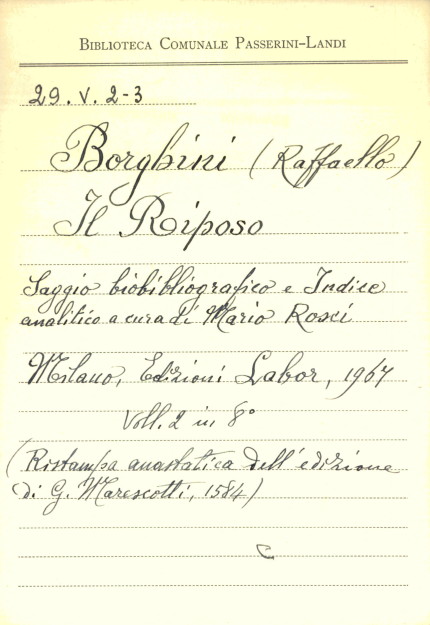 BIBLIOTECA COMUNALE PASSERINI-LANDI
29. V. 2-3
Borghini (Raffaello)
Il Riposo
Saggio biobibliografico e Indice
analitico a cura di Mario Rosci
Milano, Edizioni Labor, 1967
Voll. 2 in 8°
(Ristampa anastatica dell'edizione
di G. Marescotti, 1584)
C